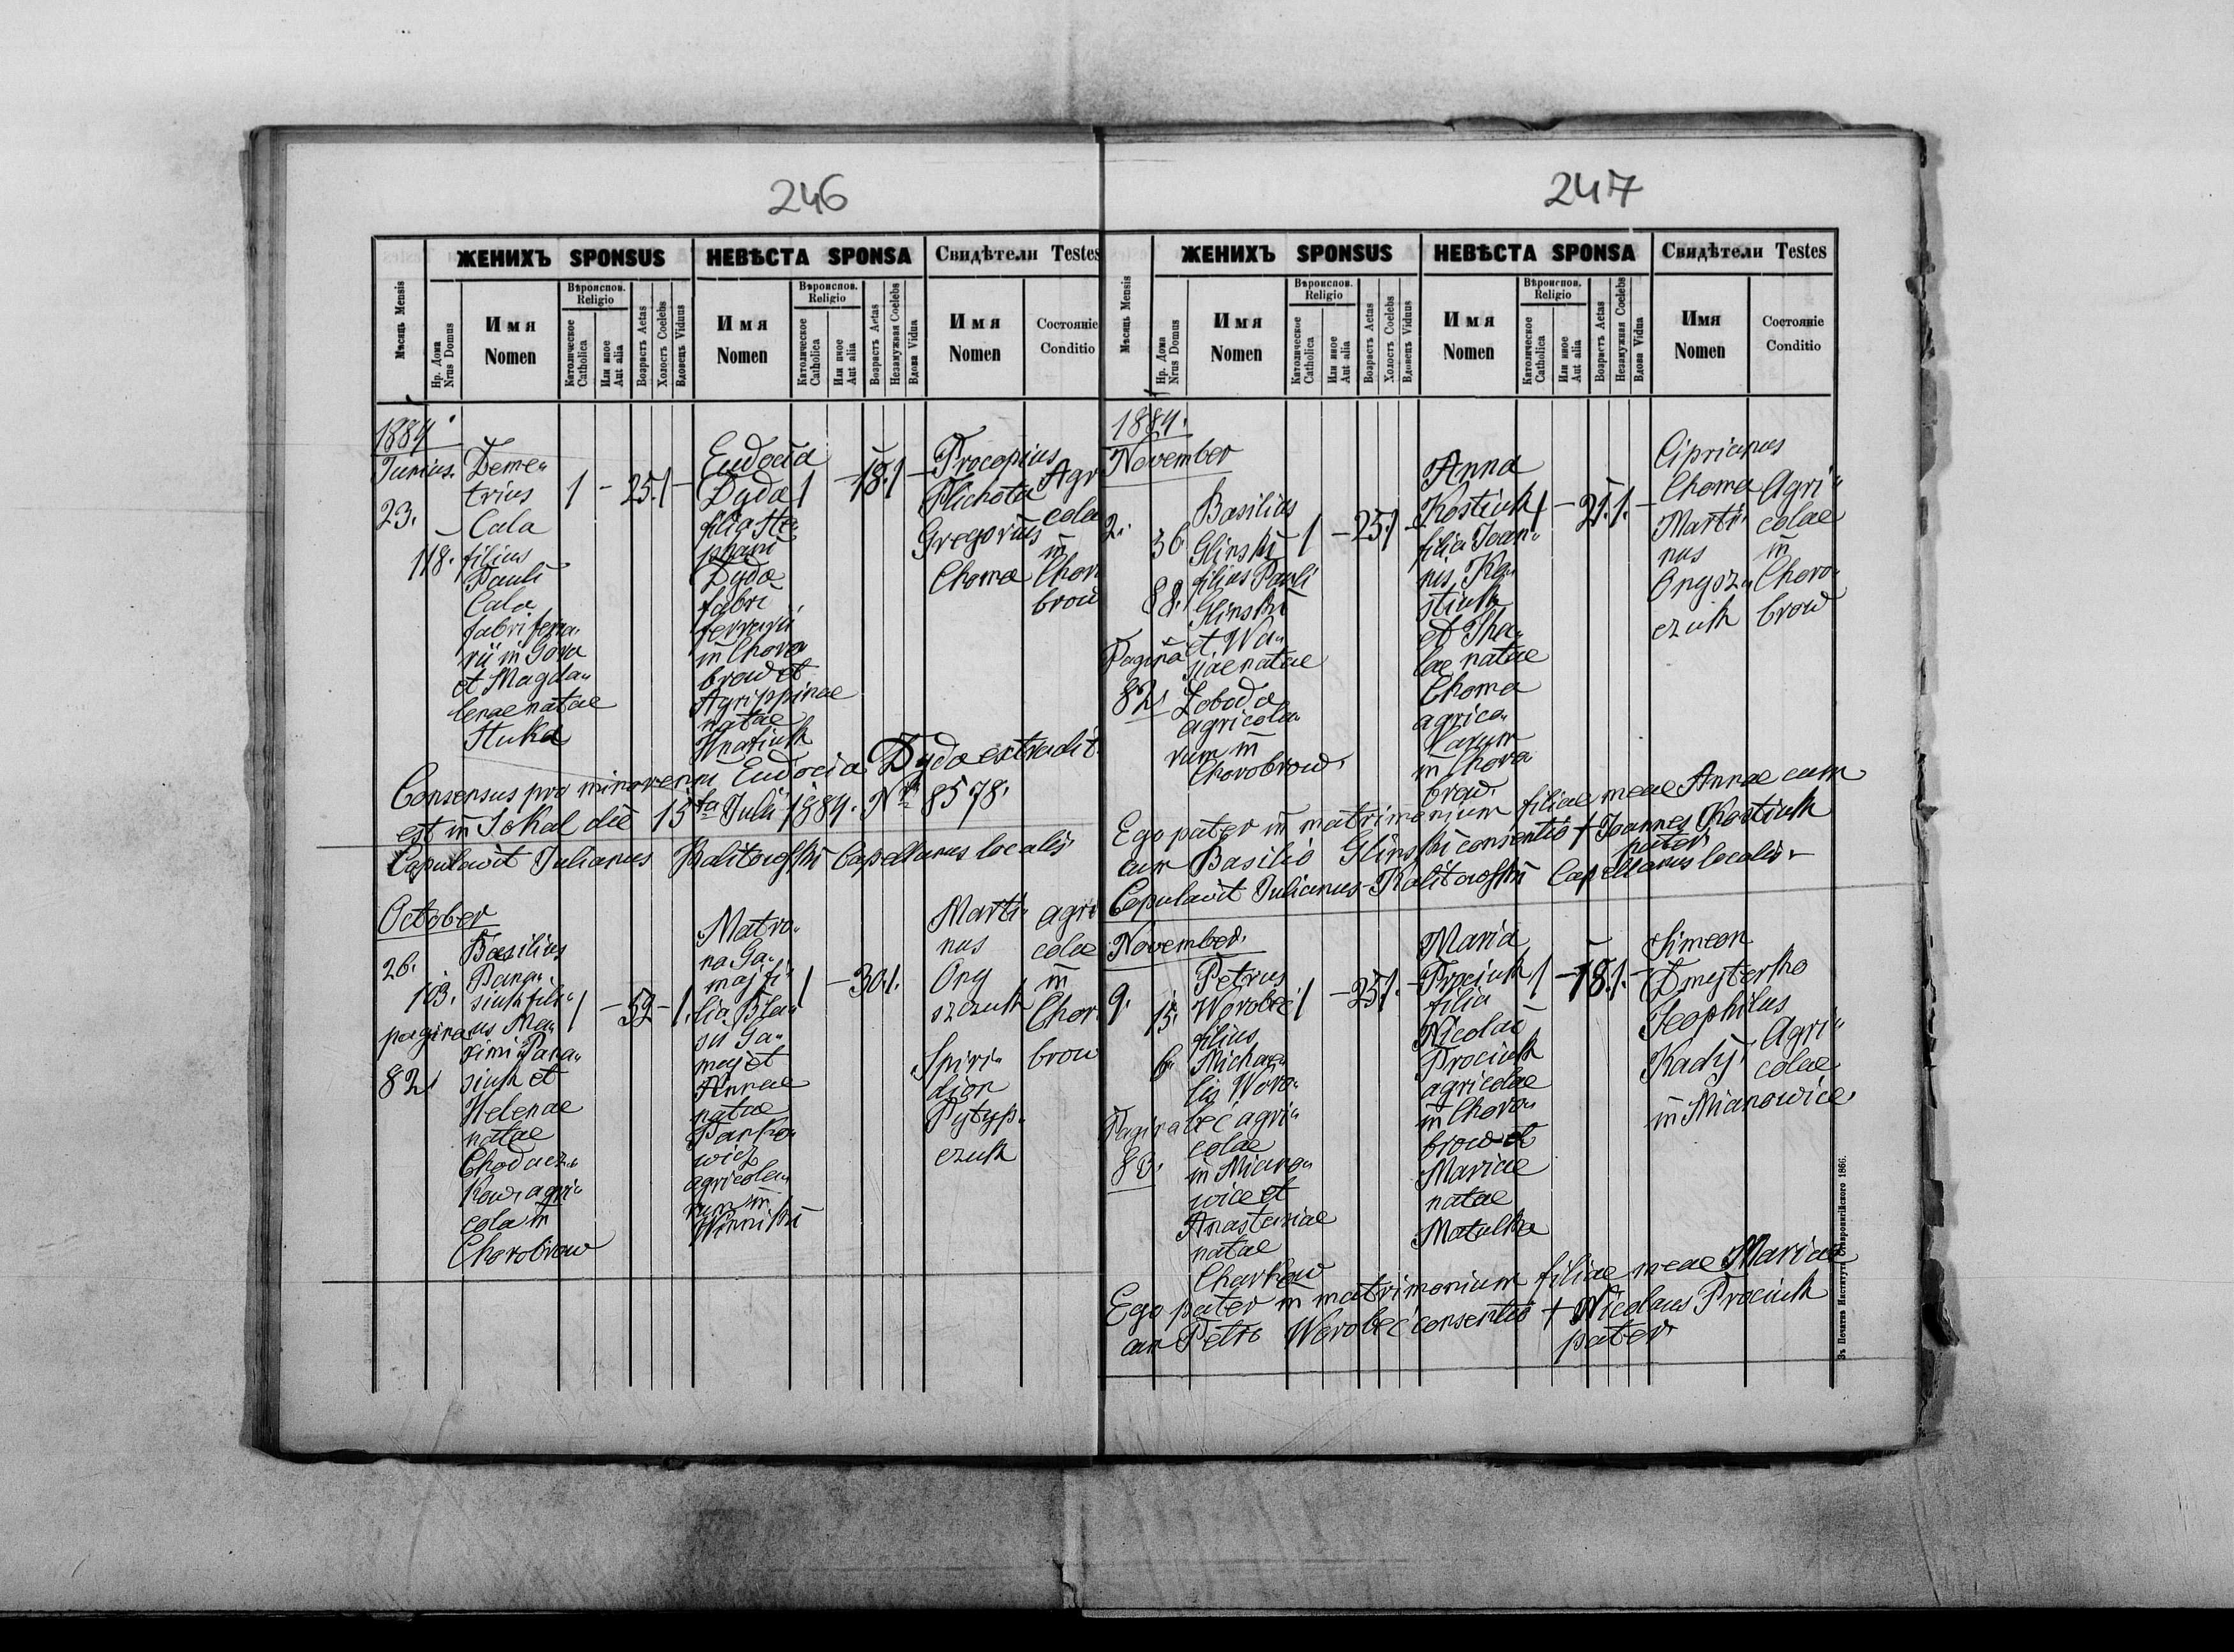 246
ЖЕНИХЪ SPONSUS
НЕВѢСТА SPONSA
Свидѣтели Testes
Мѣсяць Mensis
Нр. Дома Nrus Domus
Имя
Nomen
Вѣроиспов.
Religio
Католическое Catholica
Или иное Aut alia
Возрастъ Aetas
Холостъ Coelebs
Вдовецъ Viduus
Имя
Nomen
Вѣроиспов.
Religio
Католическое Catholica
Или иное Aut alia
Возрастъ Aetas
Незамужная Coelebs
Вдова Vidua
Имя
Nomen
Состояніе
Conditio
1884
Junius.
23.
118.
Deme„
trius
Cala
filius
Pauli
Cala
fabri ferra„
rii in Gora
et Magda„
lenae natae
Stuka
1 - 25. 1 -
Eudocia
Dyda
filia Ste„
phani
Dyda
fabri
ferrarii
in Choro
brow et
Agrippinae
natae
Hnatiuk
1 - 18. 1 -
Procopius
Plichota
Gregorius
Choma
Agr
colae
in
Chor
brow
Consensus pro minorenni Eudocia Dyda extradit.
est in Sokal die 15ta Julii 1884. Nr 8578.
Copulavit Julianus Kalitowski Capellanus localis
October
26.
103.
pagina
82
Basilius
Pana„
siuk fili„
us Ma„
ximi Pana„
siuk et
Helenae
natae
Chodacz„
kow agri„
cola in
Chorobrow
1 - 52 - 1.
Matro„
na Ga„
maj fi„
lia Bla„
sii Ga„
maj et
Annae
natae
Panko„
wicz
agricola„
rum in
Winniki
1 - 30. 1.
Marti„
nus
Ony
szczuk
Spiri„
dion
Pytyp„
czuk
agri
colae
in
Chor.
brow
247
ЖЕНИХЪ SPONSUS
НЕВѢСТА SPONSA
Свидѣтели Testes
Мѣсяць Mensis
Нр. Дома Nrus Domus
Имя
Nomen
Вѣроиспов.
Religio
Католическое Catholica
Или иное Aut alia
Возрастъ Aetas
Холостъ Coelebs
Вдовецъ Viduus
Имя
Nomen
Вѣроиспов.
Religio
Католическое Catholica
Или иное Aut alia
Возрастъ Aetas
Незамужная Coelebs
Вдова Vidua
Имя
Nomen
Состояніе
Conditio
1884.
November
2.
36
88.
Pagina
82
Basilius
Glinski
filius Pauli
Glinski
et Wa„
siae natae
Loboda
agricola„
rum in
Chorobrow.
1 - 25. 1 -
Anna
Kostiuk
filia Joan„
nis Ko„
stiuk
et The„
lae natae
Choma
agrico„
larum
in Choro
brow.
1 - 21. 1. -
Ciprianus
Choma
Marti„
nus
Onysz„
czuk
Agri„
colae
in
Choro„
brow
Ego pater in matrimonium filiae meae Annae cum
cum Basilio Glinski consentio + Joannes Kostiuk
pater
Copulavit Julianus Kalitowski Capellanus localis
November.
9.
15.
6„
Pagina
83.
Petrus
Worobec
filius
Michae„
lis Woro„
bec agri„
colae
in Miano„
wice et
Anastasiae
natae
Charkow
1 - 25. 1. -
Maria
Prociuk
filia
Nicolai
Prociuk
agricolae
in Choro„
brow et
Mariae
natae
Matulka
1 - 18. 1. -
Simeon
Dmyterko
Teophilus
Kadyj
Agri„
colae
in Mianowice.
Ego pater in matrimonium filiae meae Mariae
cum Petro Worobec consentio + Nicolaus Prociuk
pater
Зъ Печатнѣ Института Ставропигійского 1866.